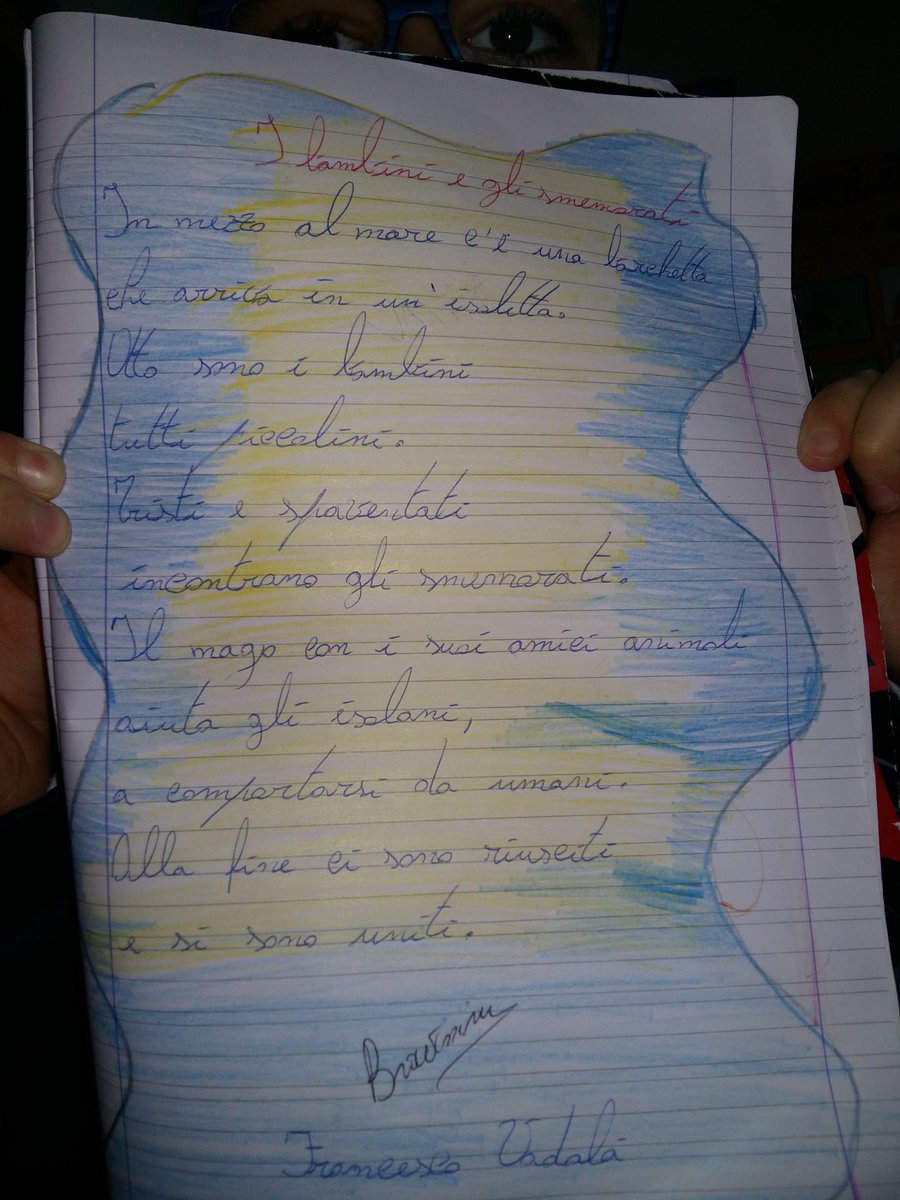 I bambini e gli smemorati
In mezzo al mare c'è una barchetta
che arriva in un'isoletta.
Otto sono i bambini
tutti piccolini.
Tristi e spaventati
incontrano gli smemorati.
Il mago con i suoi amici animali
aiuta gli isolani,
a comportarsi da umani.
Alla fine ci sono riusciti
e si sono uniti.
Francesco Vadalà